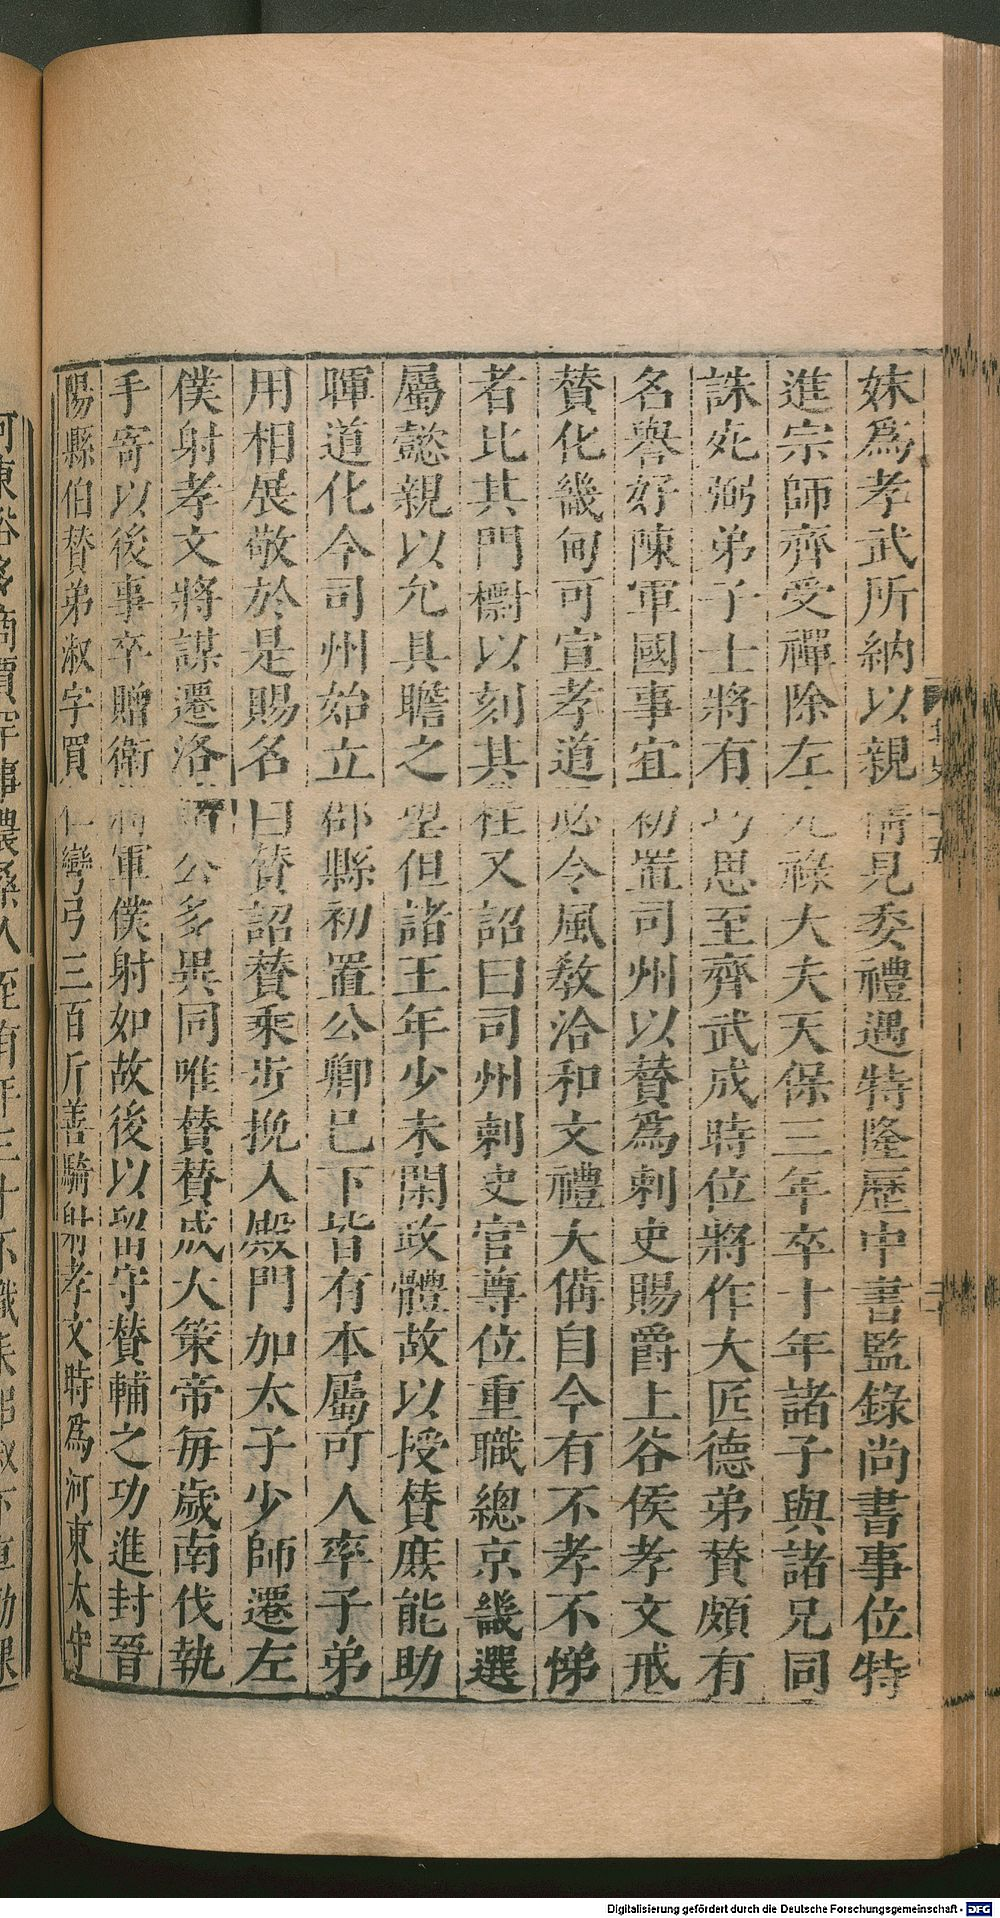 妹為孝武所納以親情見委禮遇特隆歷中書監錄尚書事位特
進宗師齊受禪除左光祿大夫天保三年卒十年諸子與諸兄同
誅死弼弟子士將有巧思至齊武成時位將作大匠德弟賛頗有
名譽好陳軍國事宜初置司州以賛為刺史賜爵上谷侯孝文戒
賛化畿甸可宣孝道必令風敎洽和文禮大備自今有不孝不悌
者比其門標以刻其柱又詔曰司州刺史官尊位重職總京畿選
屬懿親以允具瞻之望但諸王年少未閑政體故以授賛庶能助
暉道化今司州始立郡縣初置公卿已下皆有本屬可人率子弟
用相展敬於是賜名曰賛詔賛乘步挽入殿門加太子少師遷左
僕射孝文將謀遷洛諸公多異同唯賛賛成大策帝每歲南伐執
手寄以後事卒贈衛將軍僕射如故後以留守賛輔之功進封晉
陽縣伯賛弟淑字買仁彎弓三百斤善騎射孝文時為河東太守
Digitalisierung gefördert durch die Deutsche Forschungsgemeinschaft - DFG